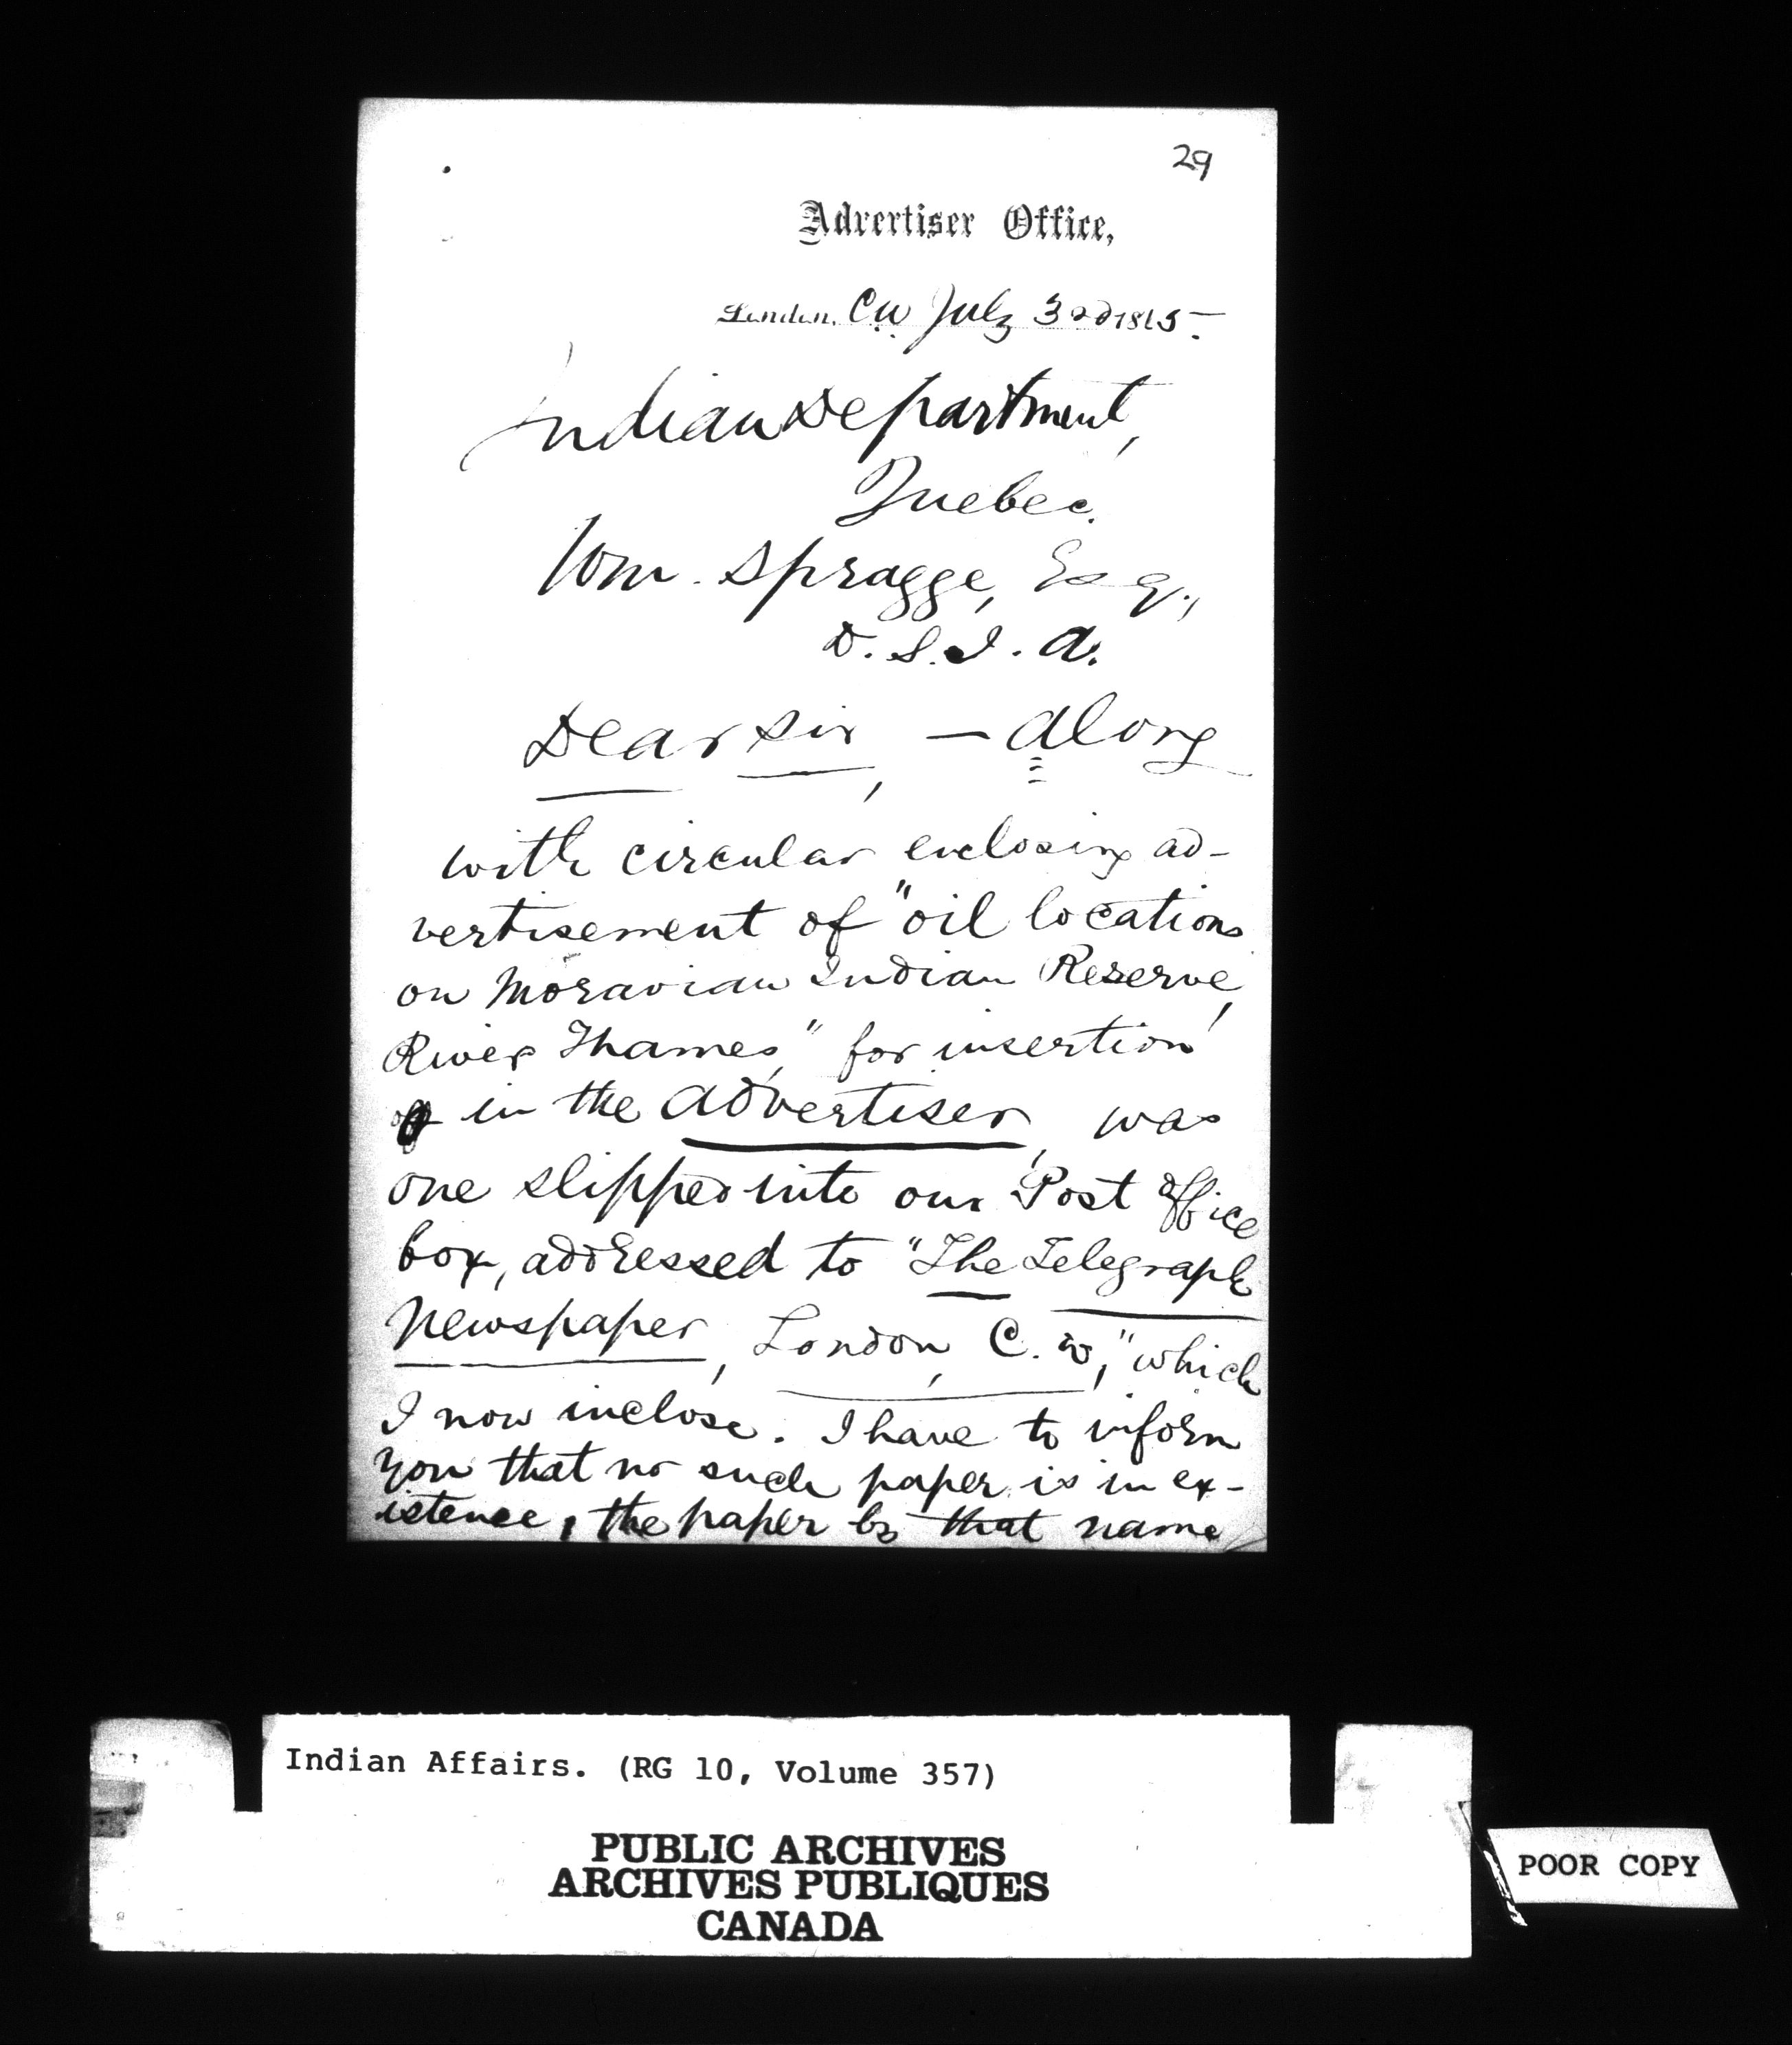 29
Advertiser Office,
London, C.W. July 3rd 1865.
Indian Department,
Quebec.
Wm. Spragge, Esq.,
D. S. I. A.
Dear Sir, — Along
with circular enclosing ad-
vertisement of "oil locations
on Moravian Indian Reserve,
River Thames," for insertion
in the Advertiser, was
one slipped into our Post Office
box, addressed to "The Telegraph
Newspaper, London, C. W.," which
I now inclose. I have to inform
you that no such paper is in ex-
istence, the paper by that name
Indian Affairs. (RG 10, Volume 357)
PUBLIC ARCHIVES
ARCHIVES PUBLIQUES
CANADA
POOR COPY